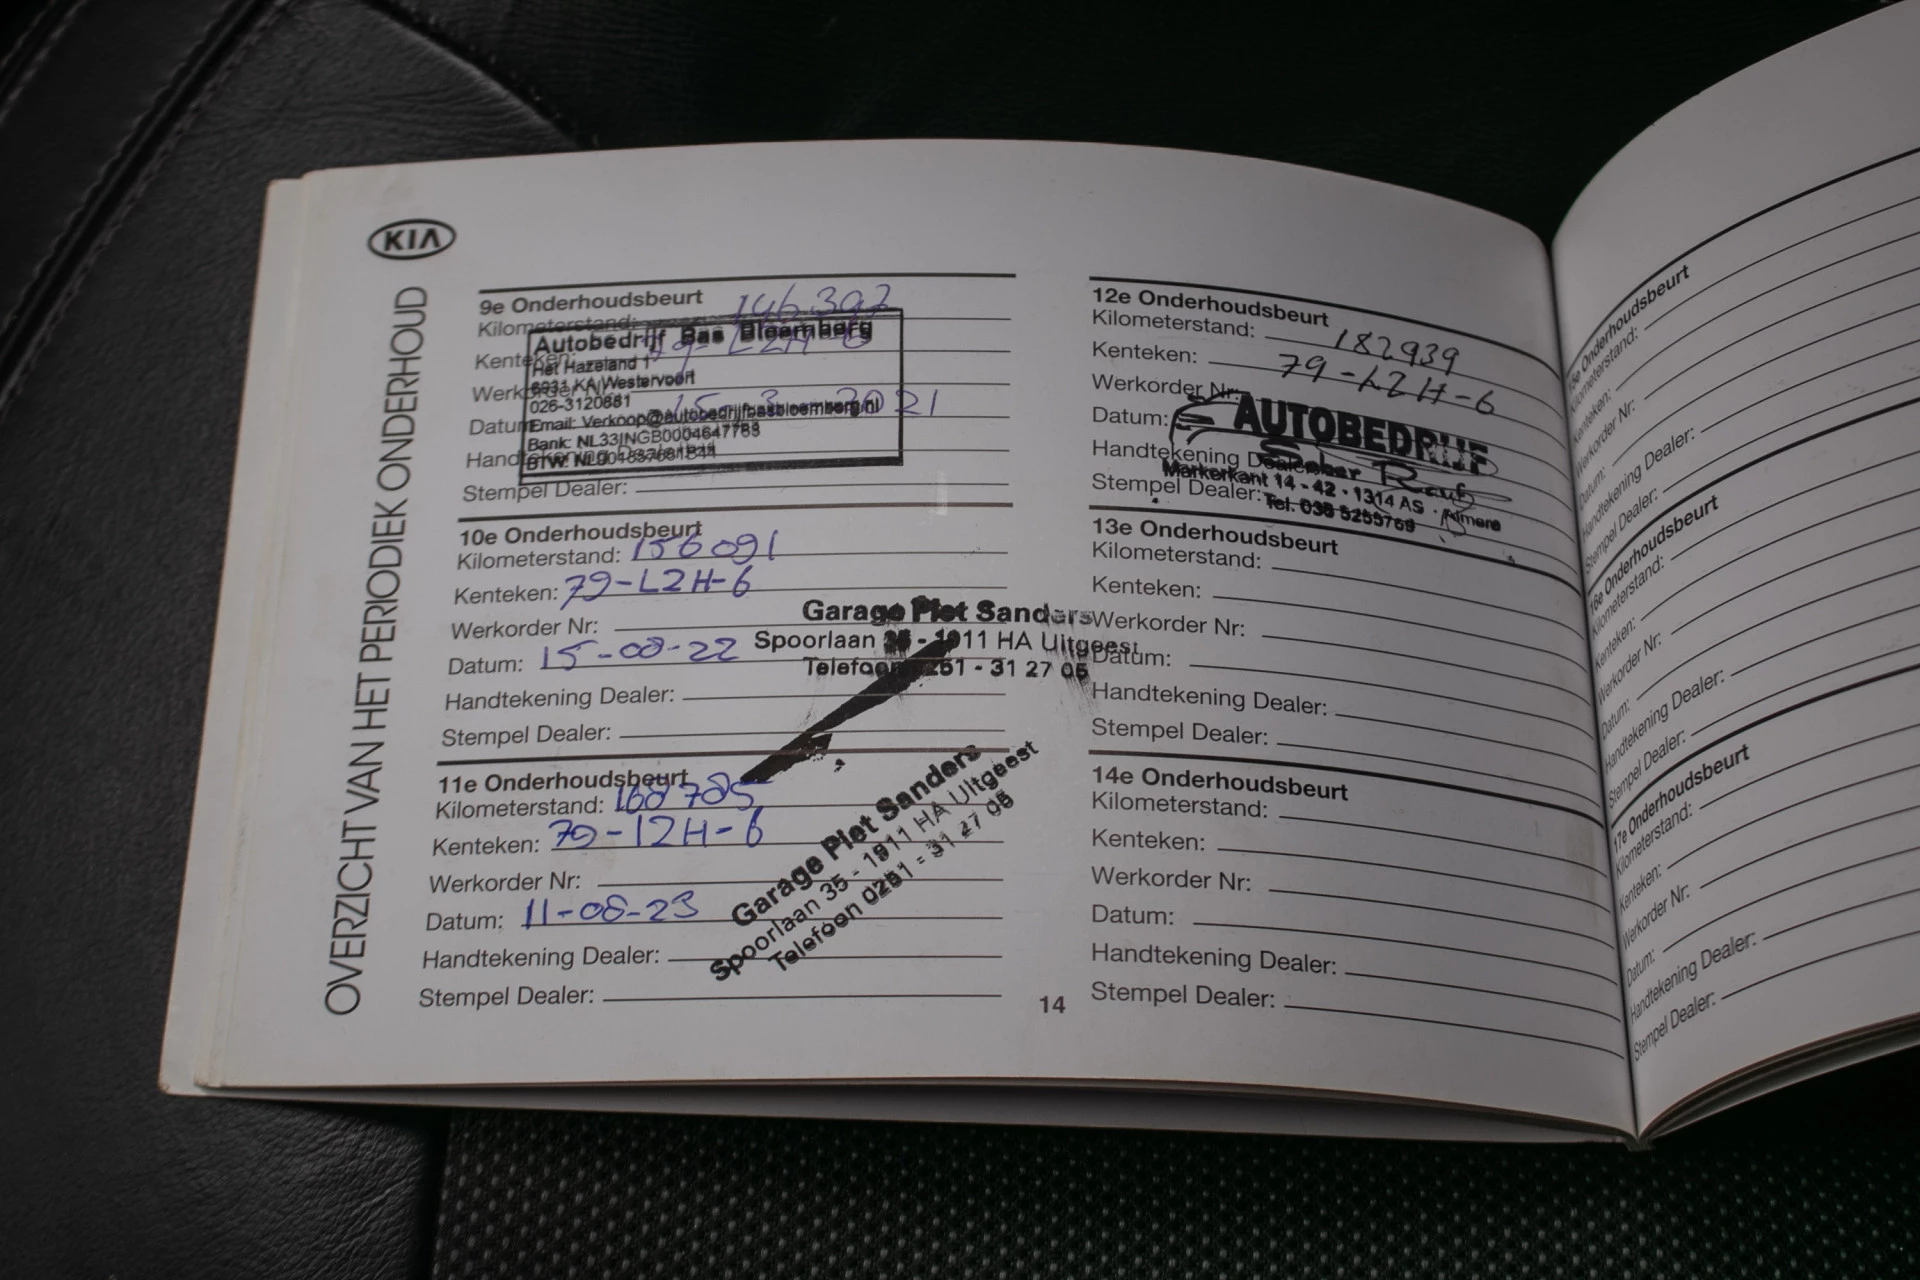 KIA
OVERZICHT VAN HET PERIODIEK ONDERHOUD
9e Onderhoudsbeurt
Kilometerstand: 146.397
Kenteken: 79-L2H-6
Datum: 15-3-2021
Autobedrijf Bas Bloemberg
Het Hazeland 1
6931 KA Westervoort
026-3120881
Email: Verkoop@autobedrijfbasbloemberg.nl
Bank: NL33INGB0004647783
Stempel Dealer:
10e Onderhoudsbeurt
Kilometerstand: 156091
Kenteken: 79-L2H-6
Werkorder Nr:
Datum: 15-08-22
Handtekening Dealer:
Stempel Dealer:
Garage Piet Sanders
Spoorlaan 35 - 1911 HA Uitgeest
Telefoon 0251 - 31 27 05
11e Onderhoudsbeurt
Kilometerstand: 168785
Kenteken: 79-12H-6
Werkorder Nr:
Datum: 11-08-23
Handtekening Dealer:
Stempel Dealer:
Garage Piet Sanders
Spoorlaan 35 - 1911 HA Uitgeest
Telefoon 0251 - 31 27 05
14
12e Onderhoudsbeurt
Kilometerstand: 182939
Kenteken: 79-L2H-6
Werkorder Nr:
Datum:
Handtekening Dealer:
Stempel Dealer:
AUTOBEDRIJF
Markerkant 14 - 42 - 1314 AS - Almere
Tel. 036 5255769
13e Onderhoudsbeurt
Kilometerstand:
Kenteken:
Werkorder Nr:
Datum:
Handtekening Dealer:
Stempel Dealer:
14e Onderhoudsbeurt
Kilometerstand:
Kenteken:
Werkorder Nr:
Datum:
Handtekening Dealer:
Stempel Dealer:
15e Onderhoudsbeurt
Kilometerstand:
Kenteken:
Werkorder Nr:
Datum:
Handtekening Dealer:
Stempel Dealer:
16e Onderhoudsbeurt
Kilometerstand:
Kenteken:
Werkorder Nr:
Datum:
Handtekening Dealer:
Stempel Dealer:
17e Onderhoudsbeurt
Kilometerstand:
Kenteken:
Werkorder Nr:
Datum:
Handtekening Dealer:
Stempel Dealer: